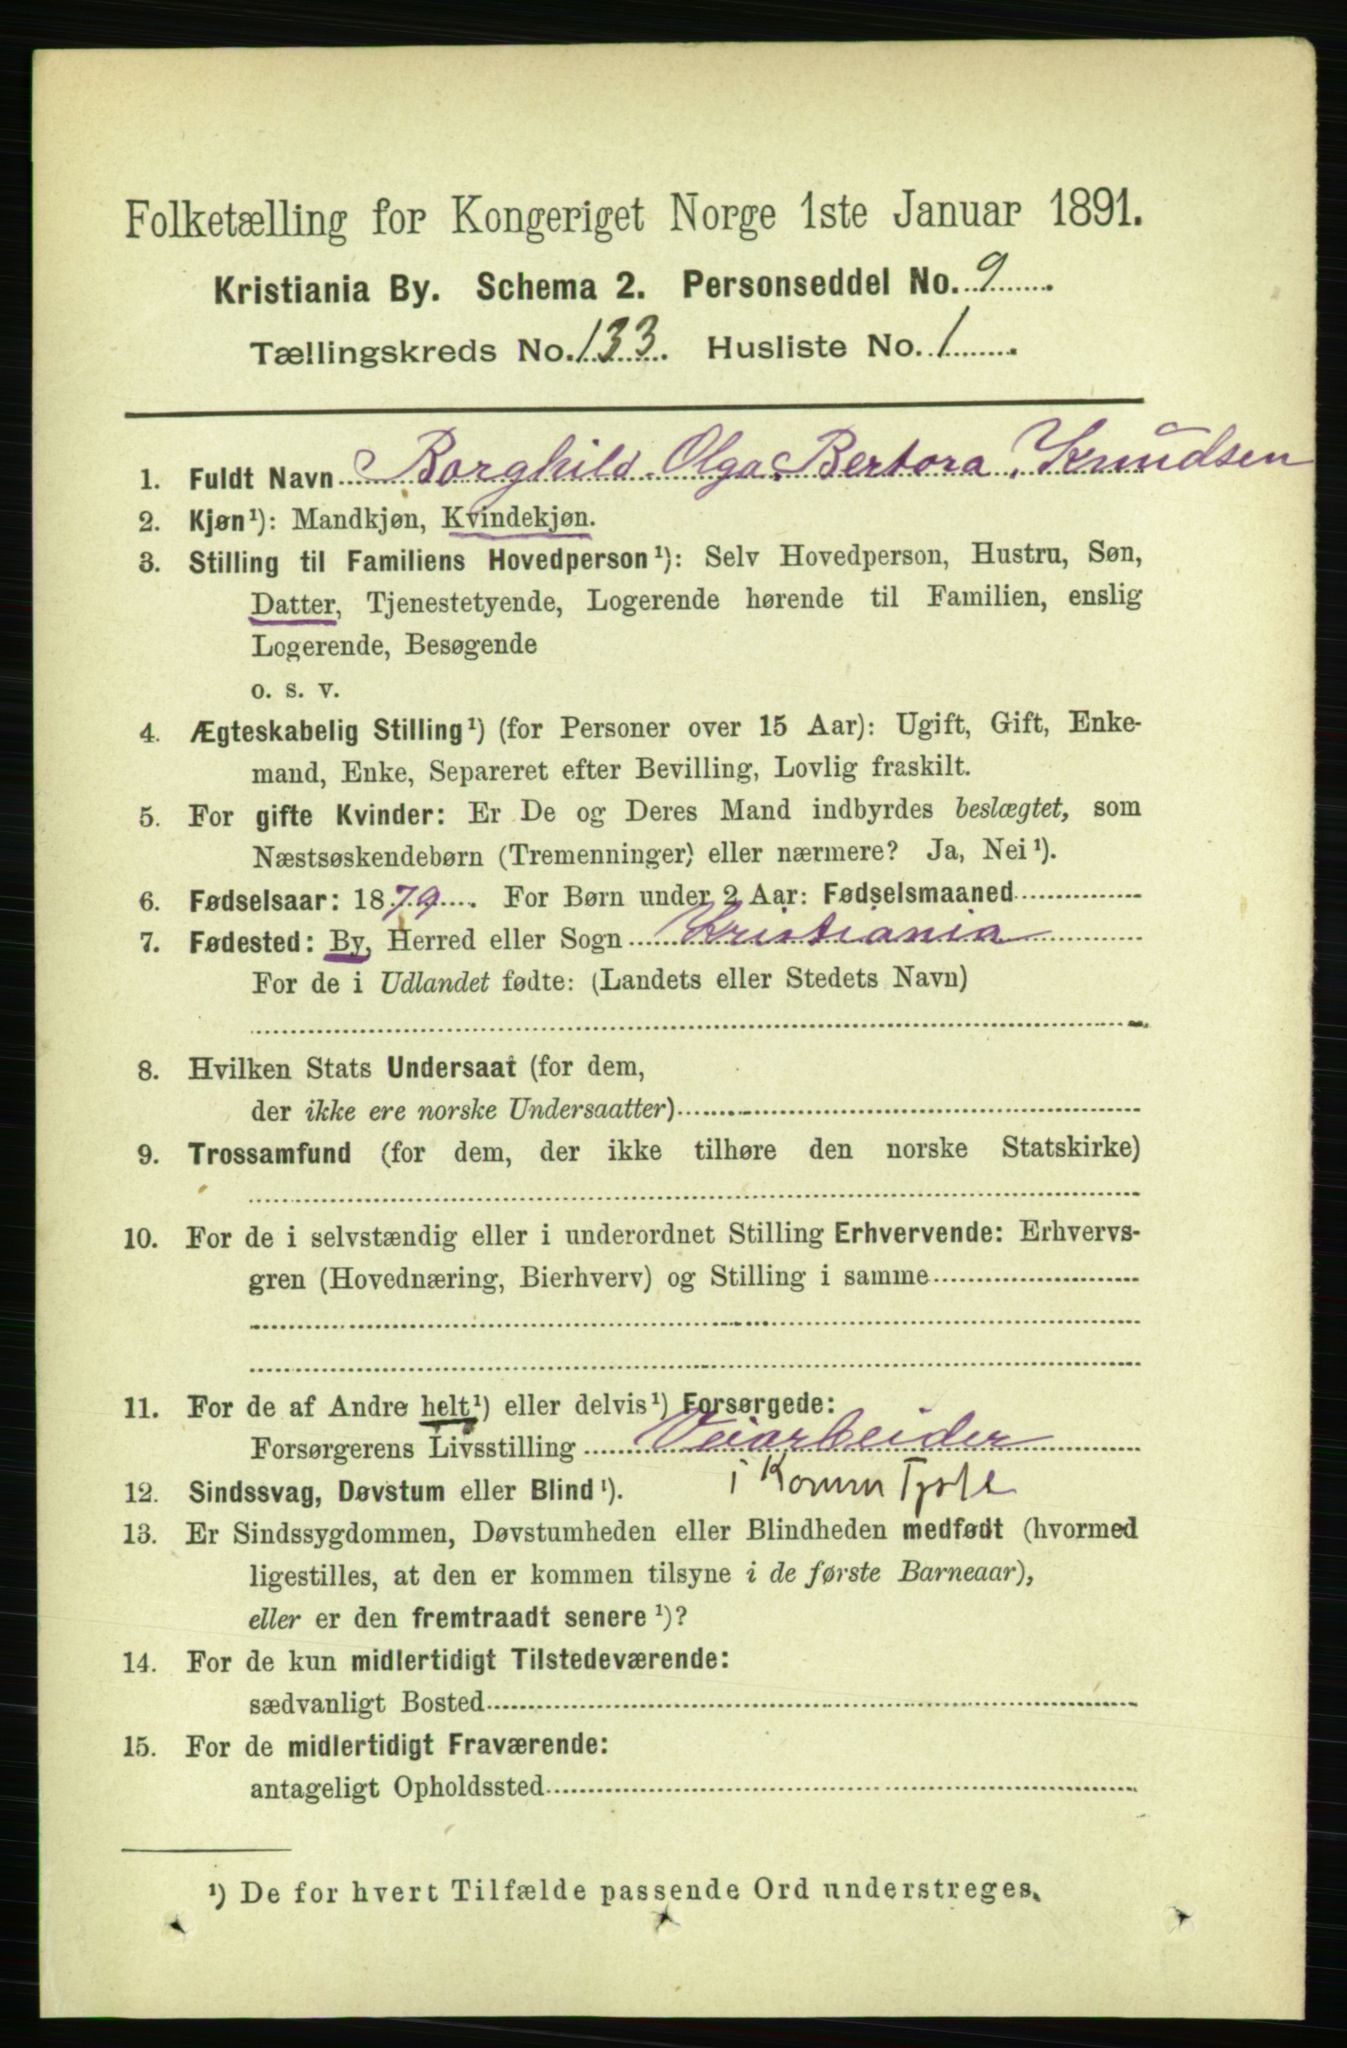 Folketælling for Kongeriget Norge 1ste Januar 1891.
Kristiania By. Schema 2. Personseddel No. 9
Tællingskreds No. 133. Husliste No. 1
1. Fuldt Navn Borghild Olga Bertora Knudsen
2. Kjøn¹): Mandkjøn, Kvindekjøn.
3. Stilling til Familiens Hovedperson¹): Selv Hovedperson, Hustru, Søn,
Datter, Tjenestetyende, Logerende hørende til Familien, enslig
Logerende, Besøgende
o. s. v.
4. Ægteskabelig Stilling¹) (for Personer over 15 Aar): Ugift, Gift, Enke-
mand, Enke, Separeret efter Bevilling, Lovlig fraskilt.
5. For gifte Kvinder: Er De og Deres Mand indbyrdes beslægtet, som
Næstsøskendebørn (Tremenninger) eller nærmere? Ja, Nei¹).
6. Fødselsaar: 1879. For Børn under 2 Aar: Fødselsmaaned
7. Fødested: By, Herred eller Sogn Kristiania
For de i Udlandet fødte: (Landets eller Stedets Navn)
8. Hvilken Stats Undersaat (for dem,
der ikke ere norske Undersaatter)
9. Trossamfund (for dem, der ikke tilhøre den norske Statskirke)
10. For de i selvstændig eller i underordnet Stilling Erhvervende: Erhvervs-
gren (Hovednæring, Bierhverv) og Stilling i samme
11. For de af Andre helt¹) eller delvis¹) Forsørgede:
Forsørgerens Livsstilling Veiarbeider
i Komm Tjste
12. Sindssvag, Døvstum eller Blind¹).
13. Er Sindssygdommen, Døvstumheden eller Blindheden medfødt (hvormed
ligestilles, at den er kommen tilsyne i de første Barneaar),
eller er den fremtraadt senere¹)?
14. For de kun midlertidigt Tilstedeværende:
sædvanligt Bosted
15. For de midlertidigt Fraværende:
antageligt Opholdssted
¹) De for hvert Tilfælde passende Ord understreges.